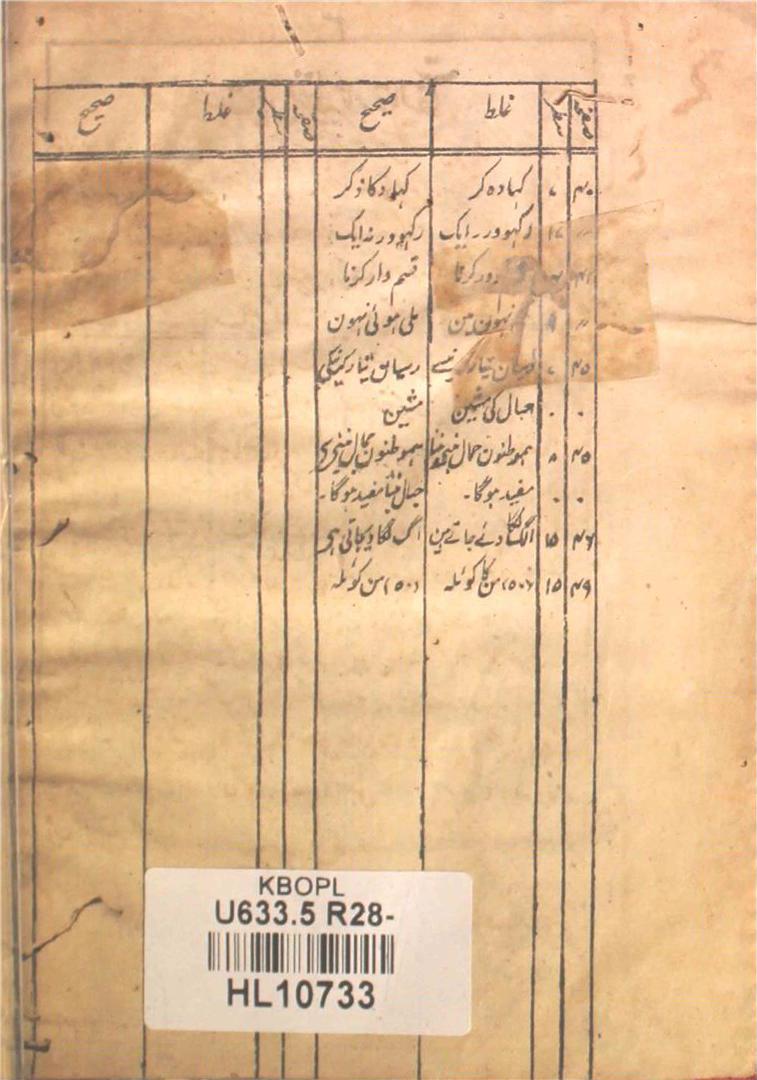 صفحہ سطر غلط صحیح صفحہ سطر غلط صحیح
۴۰ ۷ کہادہ کر کہاد کا ذکر
〃 ۱۷ رکہو ور رایک رکہو ورنہ ایک
۴۱ دور کرنا قسم وار کرنا
〃 ۸ نہون مین ملی ہوئی نہون
۴۵ ۷ تیار رسیان تیار کرنیکی
۰ ۰ جبال کی مشین مشین
۴۵ ۸ ہموطنون جمال ہموطنون
۰ ۰ مفید ہوگا۔ مفید ہوگا۔
۴۶ ۱۵ الگ لگا دئے جاتے ہین آگ لگا دیجاتی ہی
۴۹ ۱۵ (۵۰۷) من کا کوئلہ (۵۰) من کوئلہ
KBOPL
U633.5 R28-
HL10733